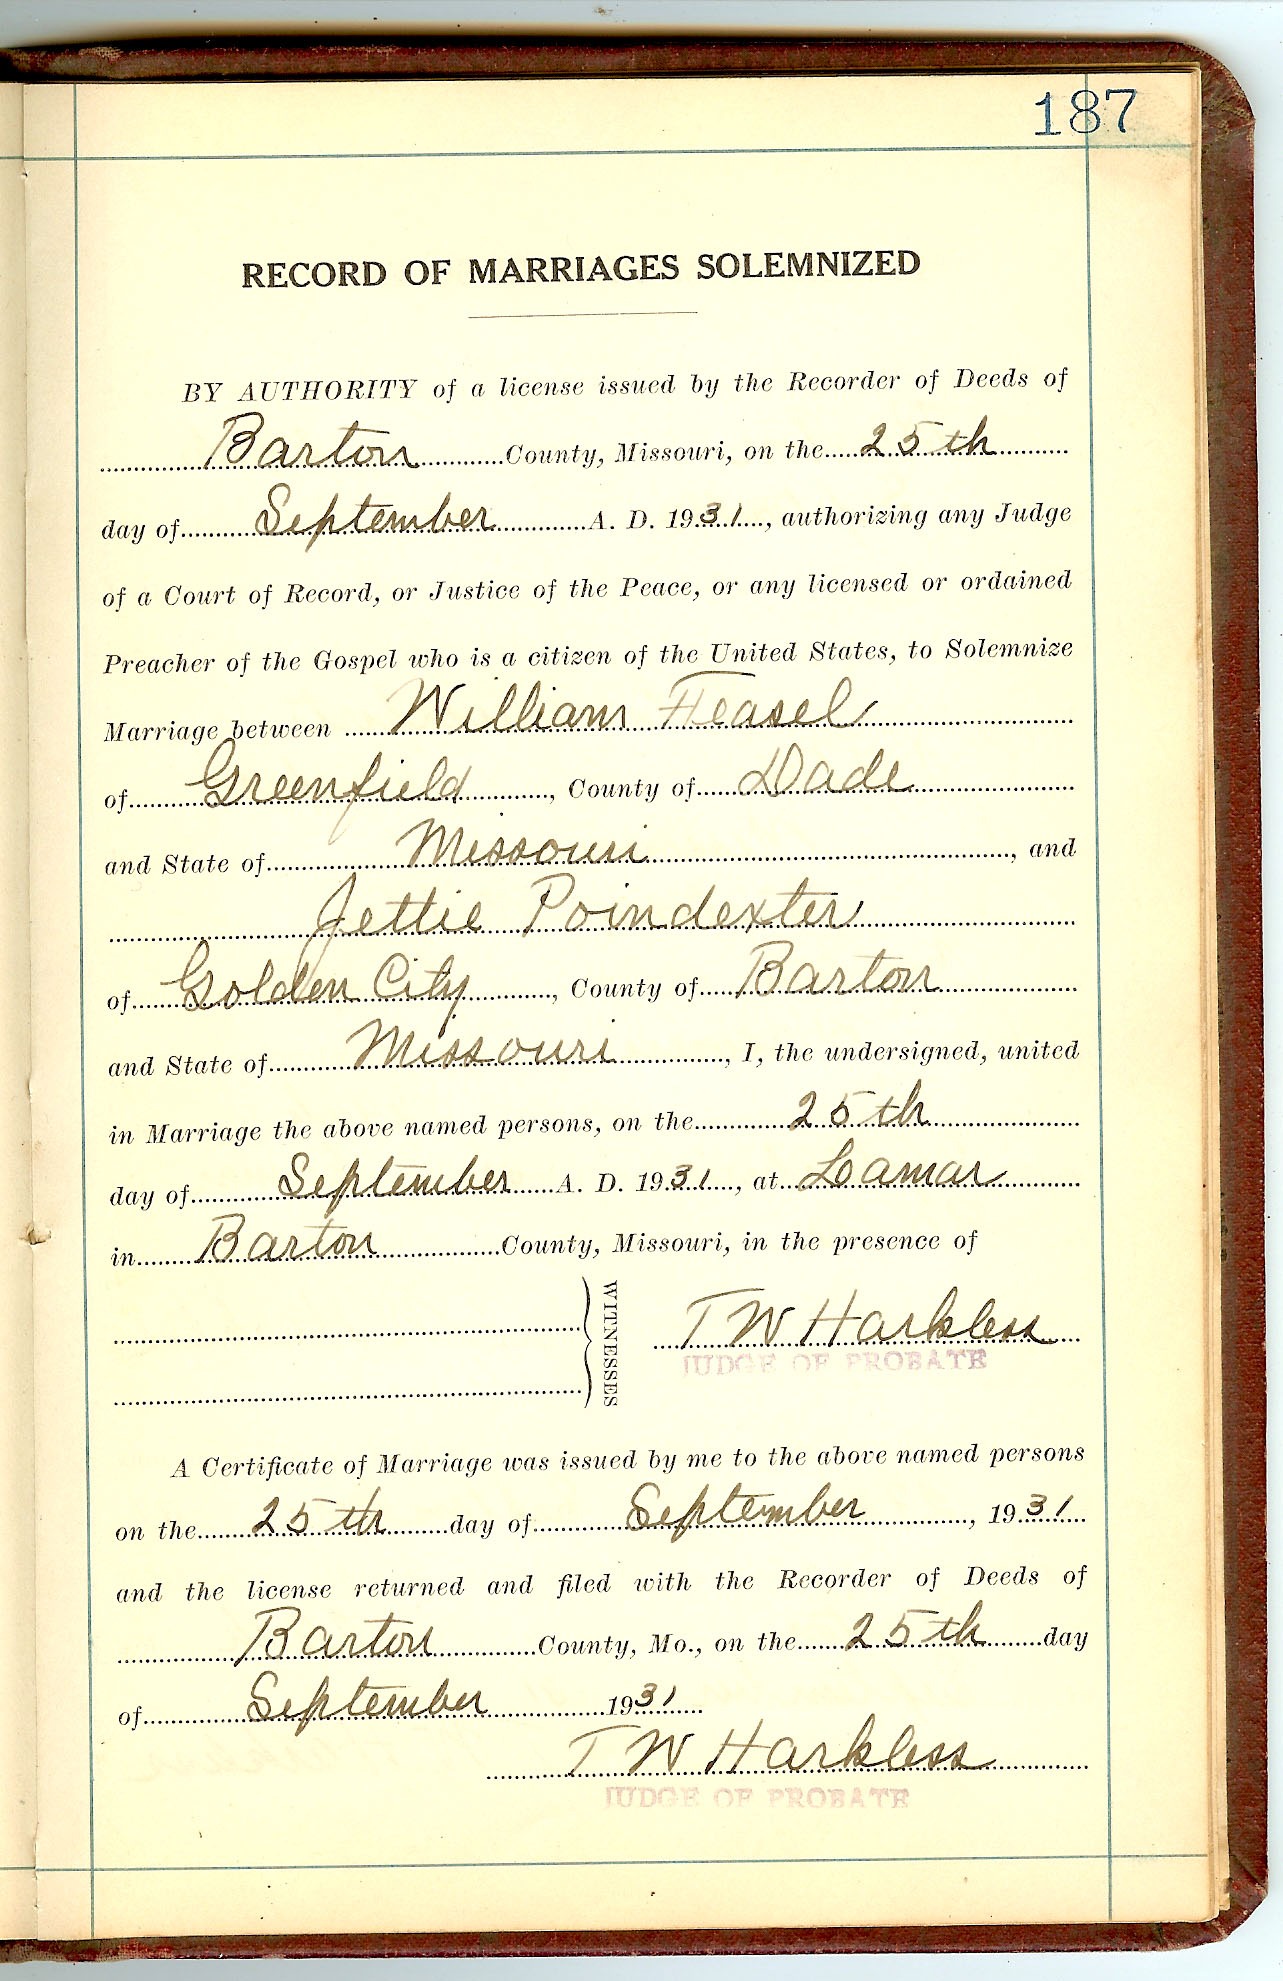 187
RECORD OF MARRIAGES SOLEMNIZED
BY AUTHORITY of a license issued by the Recorder of Deeds of
Barton County, Missouri, on the 25th
day of September A. D. 1931, authorizing any Judge
of a Court of Record, or Justice of the Peace, or any licensed or ordained
Preacher of the Gospel who is a citizen of the United States, to Solemnize
Marriage between William Feasel
of Greenfield, County of Dade
and State of Missouri, and
Jettie Poindexter
of Golden City, County of Barton
and State of Missouri, I, the undersigned, united
in Marriage the above named persons, on the 25th
day of September A. D. 1931, at Lamar
in Barton County, Missouri, in the presence of
WITNESSES
T W Harkless
JUDGE OF PROBATE
A Certificate of Marriage was issued by me to the above named persons
on the 25th day of September, 1931
and the license returned and filed with the Recorder of Deeds of
Barton County, Mo., on the 25th day
of September 1931
T W Harkless
JUDGE OF PROBATE